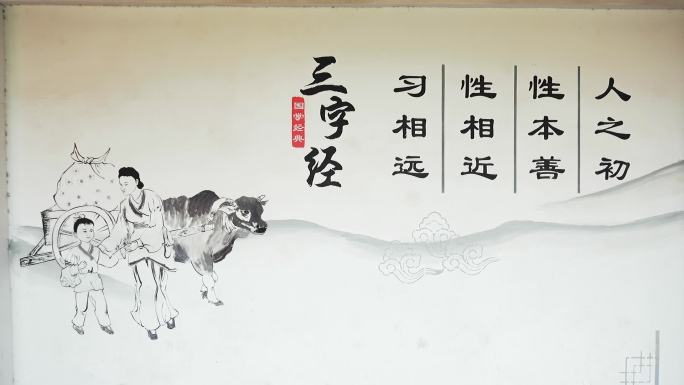 人之初
性本善
性相近
习相远
三字经
国学经典